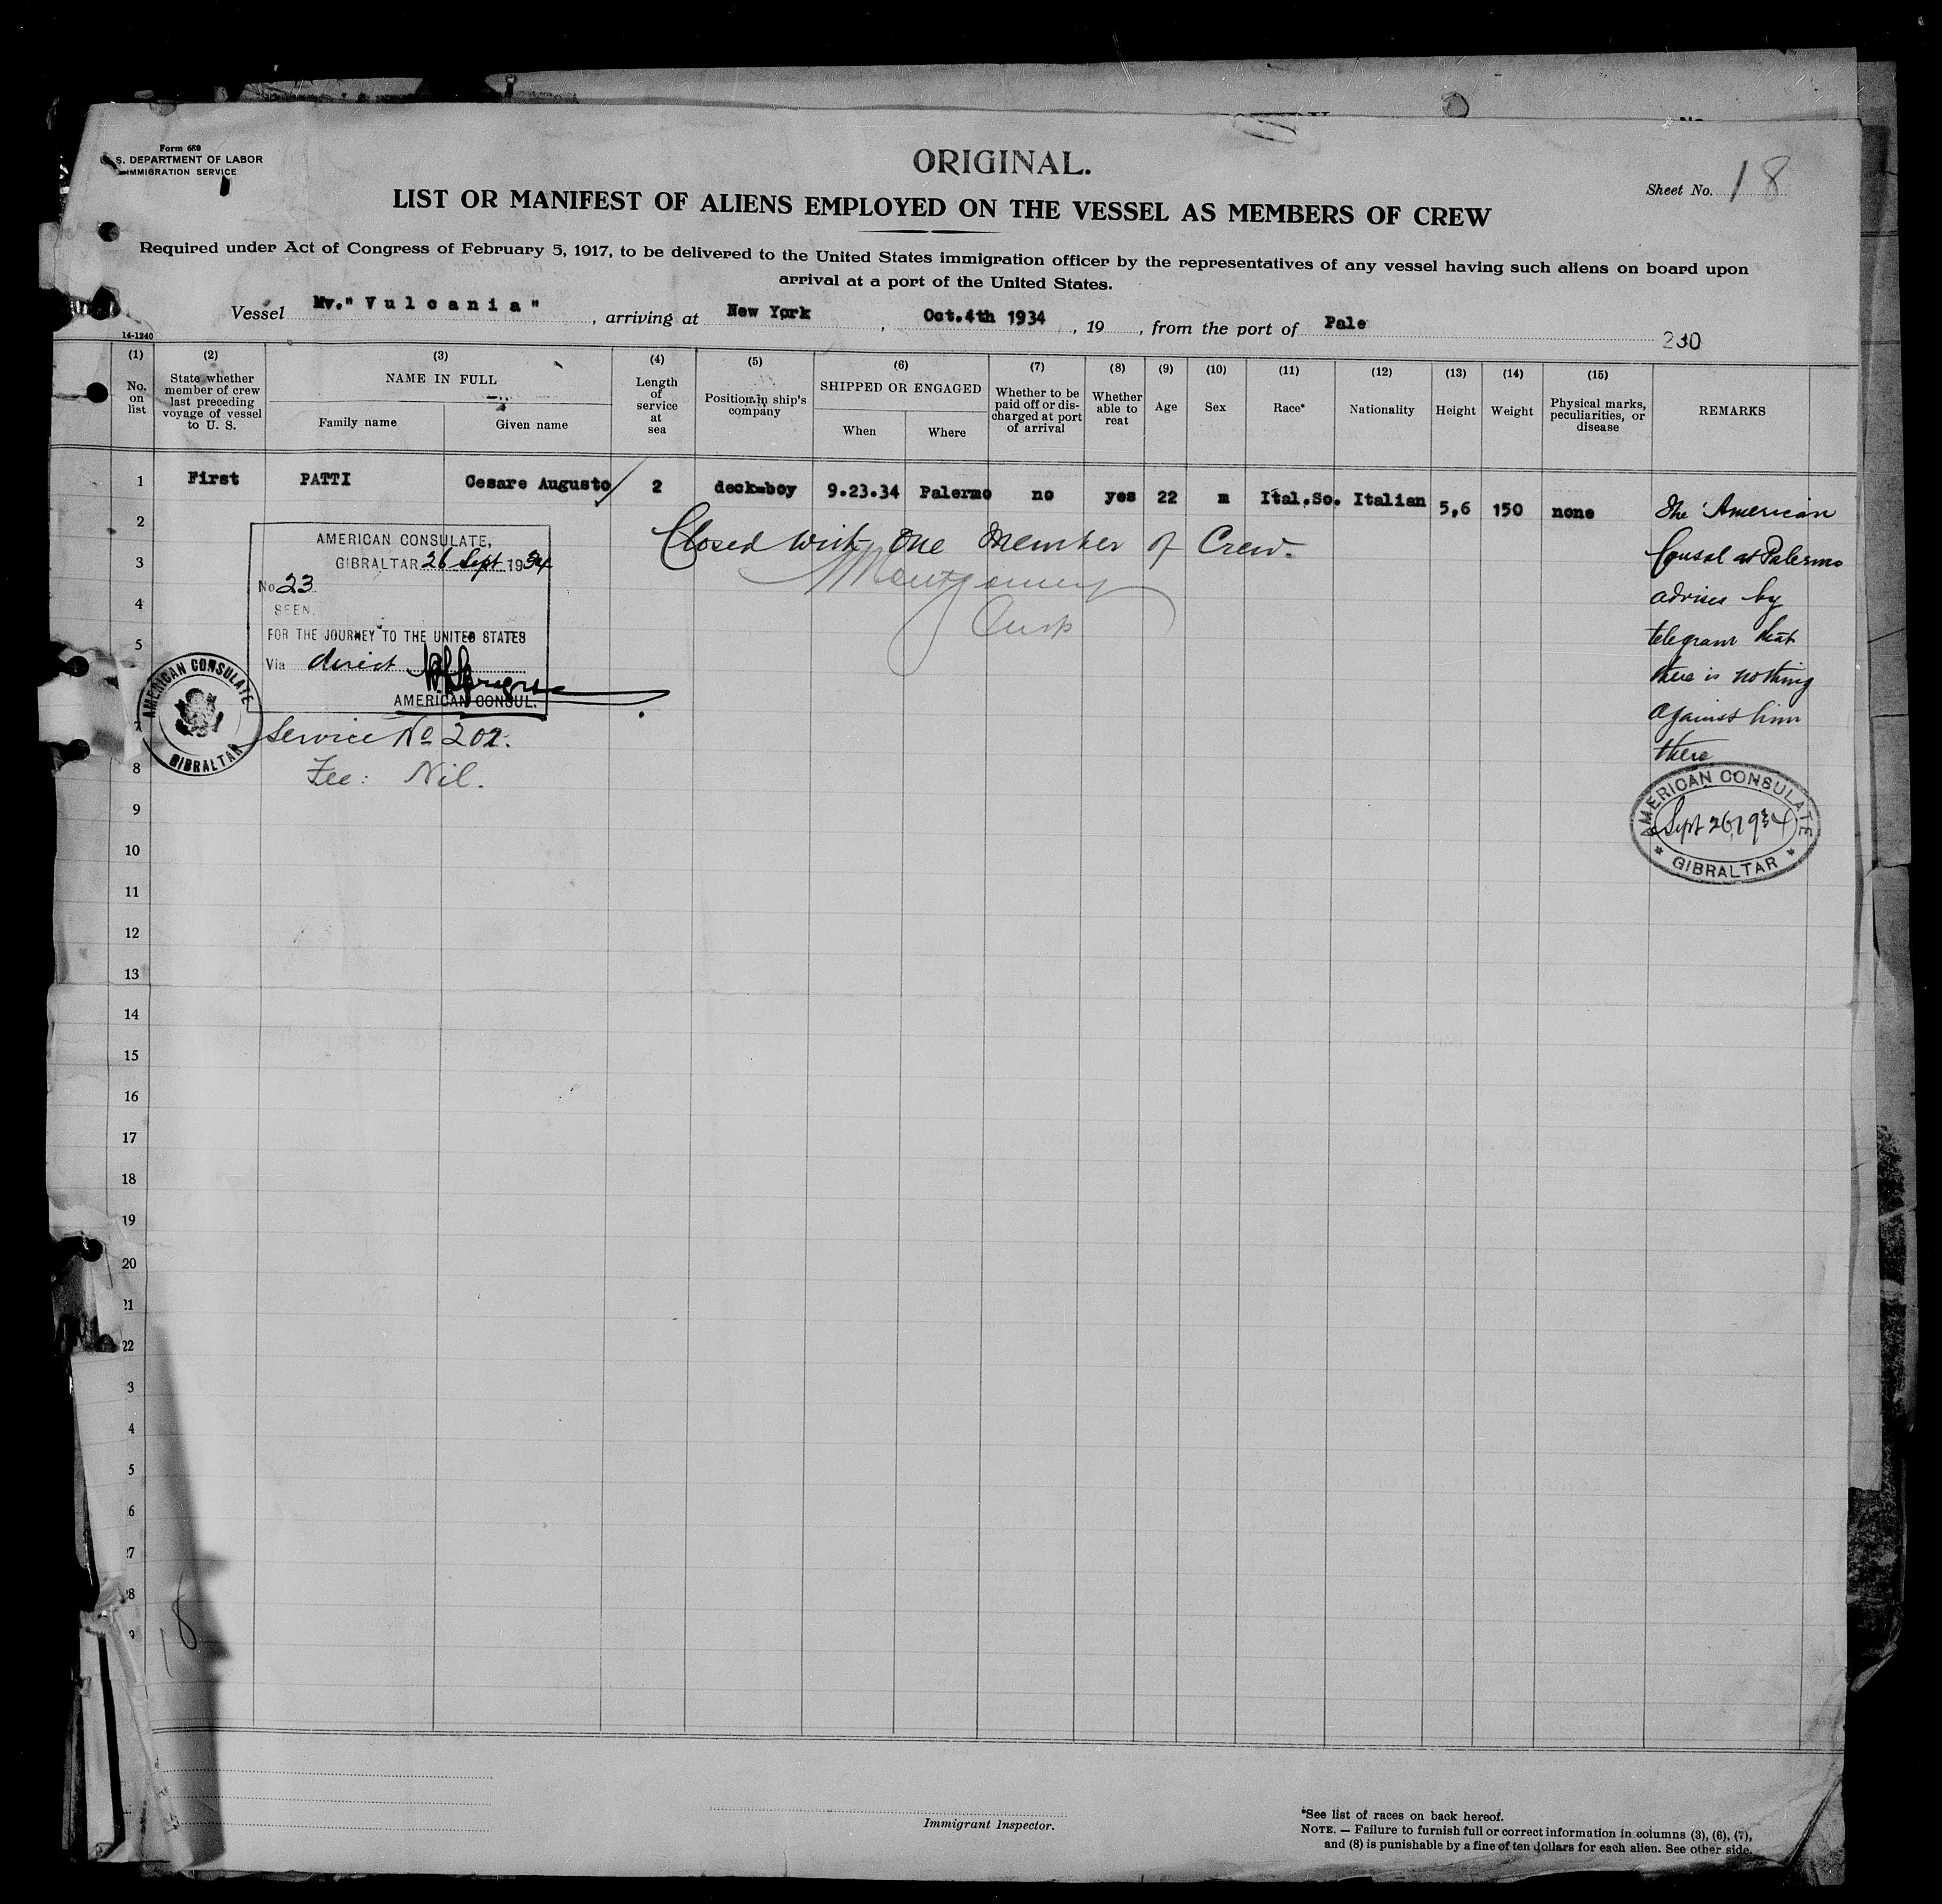 Form 689
U. S. DEPARTMENT OF LABOR
IMMIGRATION SERVICE
ORIGINAL.
Sheet No. 18
LIST OR MANIFEST OF ALIENS EMPLOYED ON THE VESSEL AS MEMBERS OF CREW
Required under Act of Congress of February 5, 1917, to be delivered to the United States immigration officer by the representatives of any vessel having such aliens on board upon
arrival at a port of the United States.
Vessel Mv." V u l c a n i a " , arriving at New York , Oct.4th 1934 , 19 , from the port of Pale
230
14-1240
(1) (2) (3) (4) (5) (6) (7) (8) (9) (10) (11) (12) (13) (14) (15)
No. on list
State whether member of crew last preceding voyage of vessel to U. S.
NAME IN FULL
Family name
Given name
Length of service at sea
Position in ship's company
SHIPPED OR ENGAGED
When
Where
Whether to be paid off or discharged at port of arrival
Whether able to reat
Age
Sex
Race*
Nationality
Height
Weight
Physical marks, peculiarities, or disease
REMARKS
1 First PATTI Cesare Augusto 2 deck-boy 9.23.34 Palermo no yes 22 m Ital.So. Italian 5,6 150 none
The American
Consul at Palermo
advises by
telegram that
there is nothing
against him
there
2 Closed with One Member of Crew.
Montgomery
AMERICAN CONSULATE,
GIBRALTAR 26 Sept 1934
No 23
SEEN.
FOR THE JOURNEY TO THE UNITED STATES
Via direct
AMERICAN CONSUL.
AMERICAN CONSULATE
GIBRALTAR
Service No 202.
Fee: Nil.
AMERICAN CONSULATE
Sept 26, 1934
GIBRALTAR
3
4
5
7
8
9
10
11
12
13
14
15
16
17
18
19
20
21
22
3
4
5
6
7
8
9
18
Immigrant Inspector.
*See list of races on back hereof.
NOTE. — Failure to furnish full or correct information in columns (3), (6), (7),
and (8) is punishable by a fine of ten dollars for each alien. See other side.